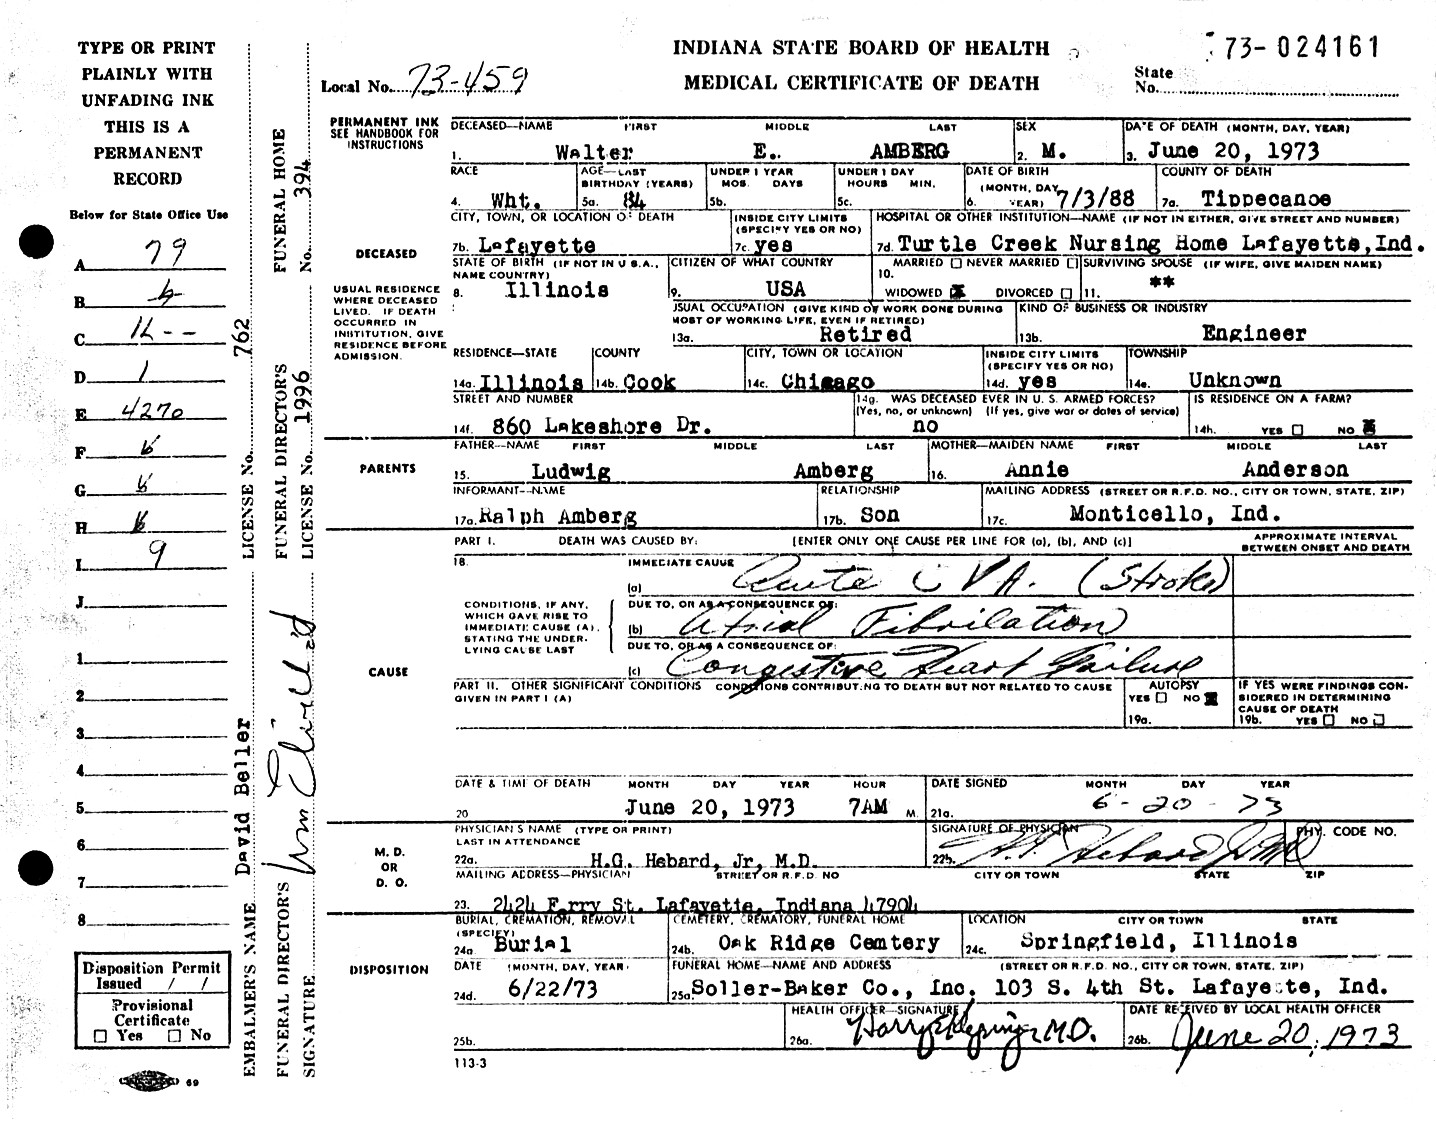 INDIANA STATE BOARD OF HEALTH
MEDICAL CERTIFICATE OF DEATH
73-024161
State No.
Local No. 73-459
TYPE OR PRINT
PLAINLY WITH
UNFADING INK
THIS IS A
PERMANENT
RECORD
Below for State Office Use
A 79
B 4
C
D 1
E 4270
F 6
G 6
H 6
I 9
J
1
2
3
4
5
6
7
8
Disposition Permit
Issued / /
Provisional
Certificate
☐ Yes ☐ No
69
EMBALMER'S NAME David Beller LICENSE No. 762
FUNERAL DIRECTOR'S SIGNATURE
FUNERAL DIRECTOR'S LICENSE No. 1996
FUNERAL HOME No. 394
PERMANENT INK
SEE HANDBOOK FOR
INSTRUCTIONS
DECEASED
USUAL RESIDENCE
WHERE DECEASED
LIVED. IF DEATH
OCCURRED IN
INSTITUTION, GIVE
RESIDENCE BEFORE
ADMISSION.
DECEASED—NAME FIRST MIDDLE LAST
1. Walter E. AMBERG
SEX
2. M.
DATE OF DEATH (MONTH, DAY, YEAR)
3. June 20, 1973
RACE
4. Wht.
AGE—LAST
BIRTHDAY (YEARS)
5a. 84
UNDER 1 YEAR
MOS. DAYS
5b.
UNDER 1 DAY
HOURS MIN.
5c.
DATE OF BIRTH
(MONTH, DAY,
6. YEAR) 7/3/88
COUNTY OF DEATH
7a. Tippecanoe
CITY, TOWN, OR LOCATION OF DEATH
7b. Lafayette
INSIDE CITY LIMITS
(SPECIFY YES OR NO)
7c. yes
HOSPITAL OR OTHER INSTITUTION—NAME (IF NOT IN EITHER, GIVE STREET AND NUMBER)
7d. Turtle Creek Nursing Home Lafayette, Ind.
STATE OF BIRTH (IF NOT IN U.S.A.,
NAME COUNTRY)
8. Illinois
CITIZEN OF WHAT COUNTRY
9. USA
10. MARRIED ☐ NEVER MARRIED ☐
WIDOWED ☒ DIVORCED ☐
SURVIVING SPOUSE (IF WIFE, GIVE MAIDEN NAME)
11. **
USUAL OCCUPATION (GIVE KIND OF WORK DONE DURING
MOST OF WORKING LIFE, EVEN IF RETIRED)
13a. Retired
KIND OF BUSINESS OR INDUSTRY
13b. Engineer
RESIDENCE—STATE
14a. Illinois
COUNTY
14b. Cook
CITY, TOWN OR LOCATION
14c. Chicago
INSIDE CITY LIMITS
(SPECIFY YES OR NO)
14d. yes
TOWNSHIP
14e. Unknown
STREET AND NUMBER
14f. 860 Lakeshore Dr.
14g. WAS DECEASED EVER IN U. S. ARMED FORCES?
(Yes, no, or unknown) (If yes, give war or dates of service)
no
IS RESIDENCE ON A FARM?
14h. YES ☐ NO ☒
PARENTS
FATHER—NAME FIRST MIDDLE LAST
15. Ludwig Amberg
MOTHER—MAIDEN NAME FIRST MIDDLE LAST
16. Annie Anderson
INFORMANT—NAME
17a. Ralph Amberg
RELATIONSHIP
17b. Son
MAILING ADDRESS (STREET OR R.F.D. NO., CITY OR TOWN, STATE, ZIP)
17c. Monticello, Ind.
CAUSE
PART I. DEATH WAS CAUSED BY: [ENTER ONLY ONE CAUSE PER LINE FOR (a), (b), AND (c)]
APPROXIMATE INTERVAL
BETWEEN ONSET AND DEATH
18. IMMEDIATE CAUSE
(a) Acute CVA. (Stroke)
CONDITIONS, IF ANY,
WHICH GAVE RISE TO
IMMEDIATE CAUSE (A),
STATING THE UNDER-
LYING CAUSE LAST
DUE TO, OR AS A CONSEQUENCE OF:
(b) Atrial Fibrilation
DUE TO, OR AS A CONSEQUENCE OF:
(c) Congestive Heart Failure
PART II. OTHER SIGNIFICANT CONDITIONS CONDITIONS CONTRIBUTING TO DEATH BUT NOT RELATED TO CAUSE
GIVEN IN PART I (A)
AUTOPSY
YES ☐ NO ☒
19a.
IF YES WERE FINDINGS CON-
SIDERED IN DETERMINING
CAUSE OF DEATH
19b. YES ☐ NO ☐
DATE & TIME OF DEATH MONTH DAY YEAR HOUR
20 June 20, 1973 7AM M.
DATE SIGNED MONTH DAY YEAR
21a. 6-20-73
M. D.
OR
D. O.
PHYSICIAN'S NAME (TYPE OR PRINT)
LAST IN ATTENDANCE
22a. H.G. Hebard, Jr, M.D.
SIGNATURE OF PHYSICIAN
22b. H.G. Hebard Jr MD
PHY. CODE NO.
MAILING ADDRESS—PHYSICIAN STREET OR R.F.D. NO CITY OR TOWN STATE ZIP
23. 2424 Ferry St. Lafayette, Indiana 47904
DISPOSITION
BURIAL, CREMATION, REMOVAL
(SPECIFY)
24a. Burial
CEMETERY, CREMATORY, FUNERAL HOME
24b. Oak Ridge Cemtery
LOCATION CITY OR TOWN STATE
24c. Springfield, Illinois
DATE (MONTH, DAY, YEAR)
24d. 6/22/73
FUNERAL HOME—NAME AND ADDRESS (STREET OR R.F.D. NO., CITY OR TOWN, STATE, ZIP)
25a. Soller-Baker Co., Inc. 103 S. 4th St. Lafayette, Ind.
25b.
HEALTH OFFICER—SIGNATURE
26a. Harry M.D.
DATE RECEIVED BY LOCAL HEALTH OFFICER
26b. June 20, 1973
113-3